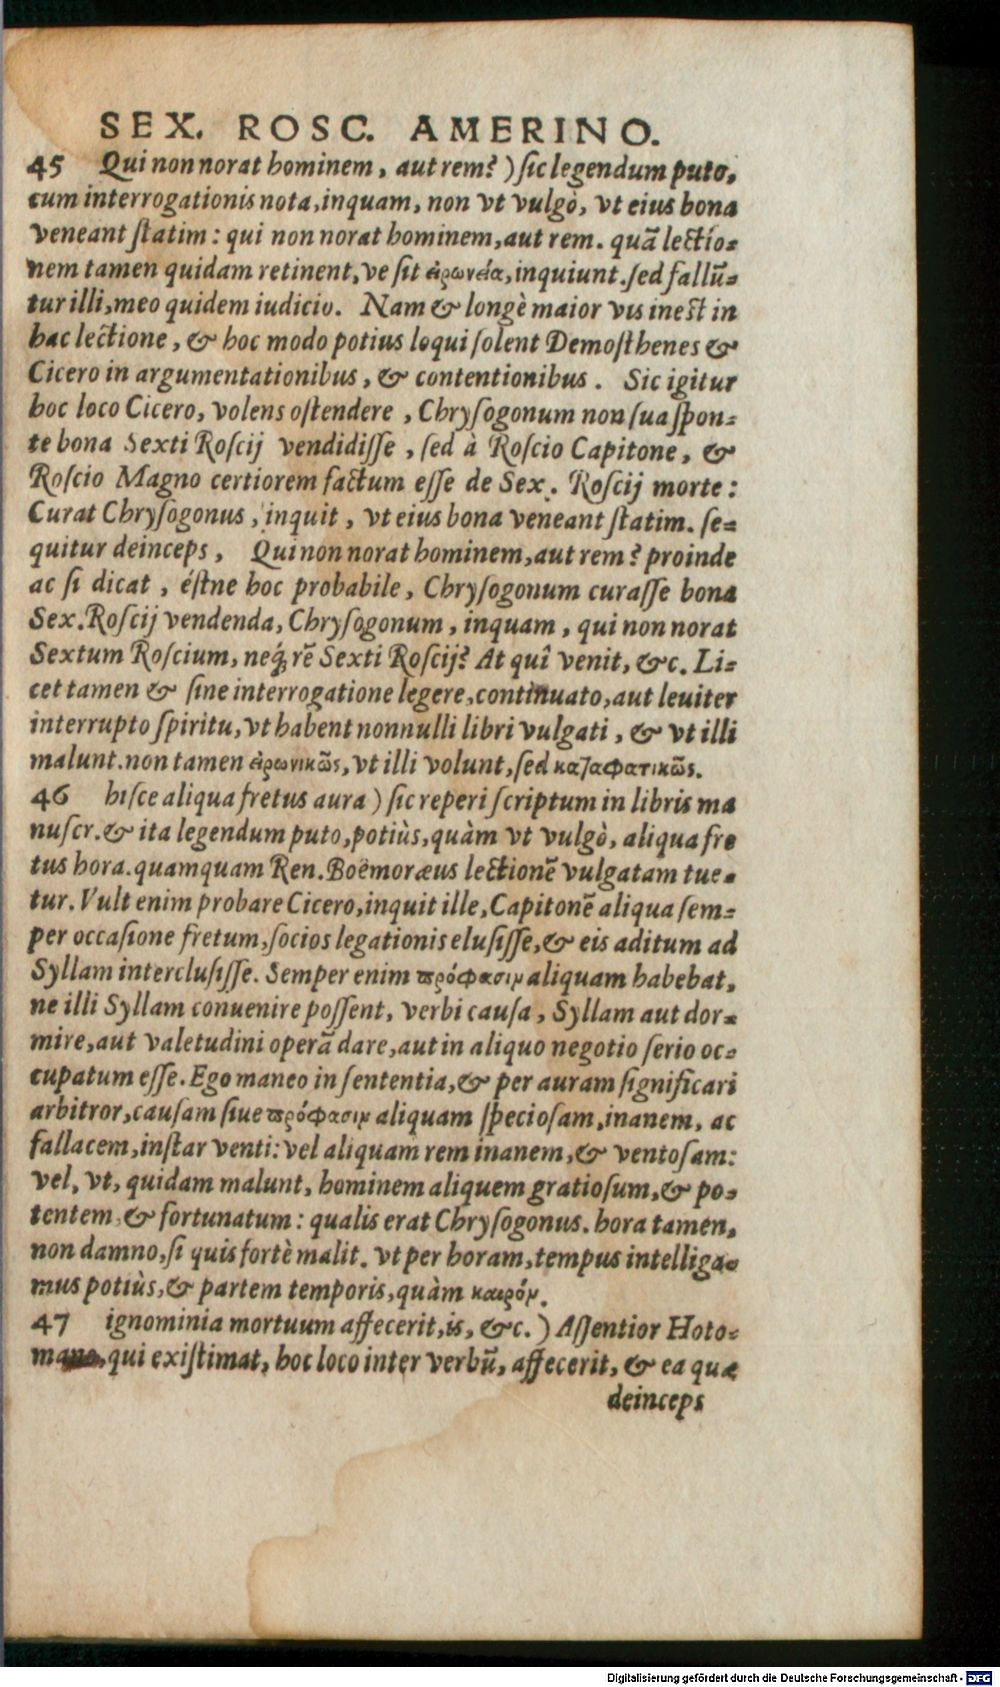 SEX. ROSC. AMERINO.
45 Qui non norat hominem, aut rem?) sic legendum puto,
cum interrogationis nota, inquam, non vt vulgò, vt eius bona
veneant statim: qui non norat hominem, aut rem. quã lectio-
nem tamen quidam retinent, ve sit εἰρωνεία, inquiunt. sed fallũ-
tur illi, meo quidem iudicio. Nam & longè maior vis inest in
hac lectione, & hoc modo potius loqui solent Demosthenes &
Cicero in argumentationibus, & contentionibus. Sic igitur
hoc loco Cicero, volens ostendere, Chrysogonum non sua spon-
te bona Sexti Roscij vendidisse, sed à Roscio Capitone, &
Roscio Magno certiorem factum esse de Sex. Roscij morte:
Curat Chrysogonus, inquit, vt eius bona veneant statim. se-
quitur deinceps, Qui non norat hominem, aut rem? proinde
ac si dicat, éstne hoc probabile, Chrysogonum curasse bona
Sex. Roscij vendenda, Chrysogonum, inquam, qui non norat
Sextum Roscium, neq; rẽ Sexti Roscij? At quî venit, &c. Li-
cet tamen & sine interrogatione legere, continuato, aut leuiter
interrupto spiritu, vt habent nonnulli libri vulgati, & vt illi
malunt. non tamen εἰρωνικῶς, vt illi volunt, sed καταφατικῶς.
46 hisce aliqua fretus aura) sic reperi scriptum in libris ma
nuscr. & ita legendum puto, potiùs, quàm vt vulgò, aliqua fre
tus hora. quamquam Ren. Boëmoræus lectionẽ vulgatam tue-
tur. Vult enim probare Cicero, inquit ille, Capitonẽ aliqua sem-
per occasione fretum, socios legationis elusisse, & eis aditum ad
Syllam interclusisse. Semper enim πρόφασιν aliquam habebat,
ne illi Syllam conuenire possent, verbi causa, Syllam aut dor-
mire, aut valetudini operã dare, aut in aliquo negotio serio oc-
cupatum esse. Ego maneo in sententia, & per auram significari
arbitror, causam siue πρόφασιν aliquam speciosam, inanem, ac
fallacem, instar venti: vel aliquam rem inanem, & ventosam:
vel, vt, quidam malunt, hominem aliquem gratiosum, & po-
tentem, & fortunatum: qualis erat Chrysogonus. hora tamen,
non damno, si quis fortè malit. vt per horam, tempus intelliga-
mus potiùs, & partem temporis, quàm καιρόν.
47 ignominia mortuum affecerit, is, &c.) Assentior Hoto-
mano, qui existimat, hoc loco inter verbũ, affecerit, & ea quæ
deinceps
Digitalisierung gefördert durch die Deutsche Forschungsgemeinschaft - DFG